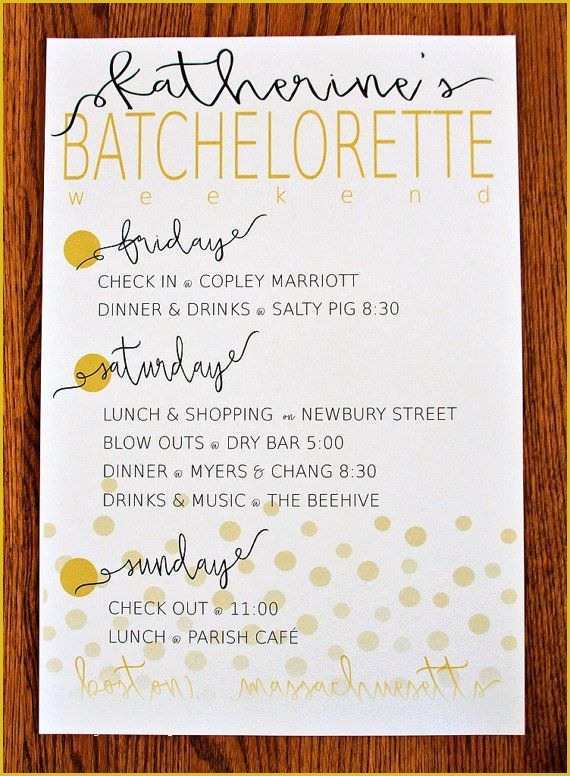 Katherine's
BATCHELORETTE
weekend
friday
CHECK IN @ COPLEY MARRIOTT
DINNER & DRINKS @ SALTY PIG 8:30
saturday
LUNCH & SHOPPING on NEWBURY STREET
BLOW OUTS @ DRY BAR 5:00
DINNER @ MYERS & CHANG 8:30
DRINKS & MUSIC @ THE BEEHIVE
sunday
CHECK OUT @ 11:00
LUNCH @ PARISH CAFÉ
boston, massachusetts